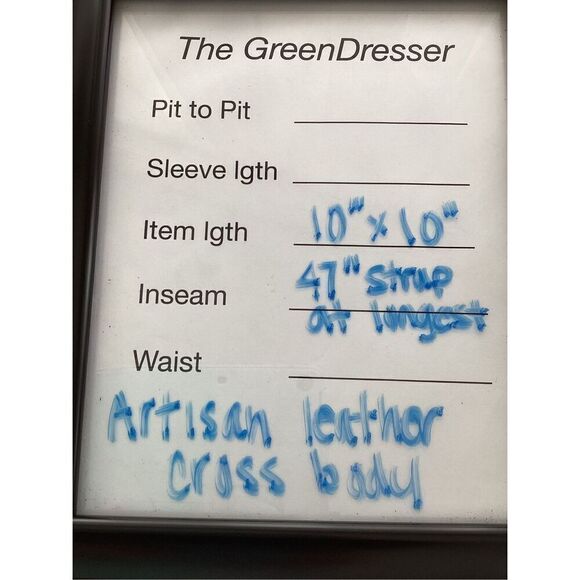 The GreenDresser
Pit to Pit
Sleeve lgth
Item lgth 10" x 10"
Inseam 47" strap
at longest
Waist
Artisan leather
cross body